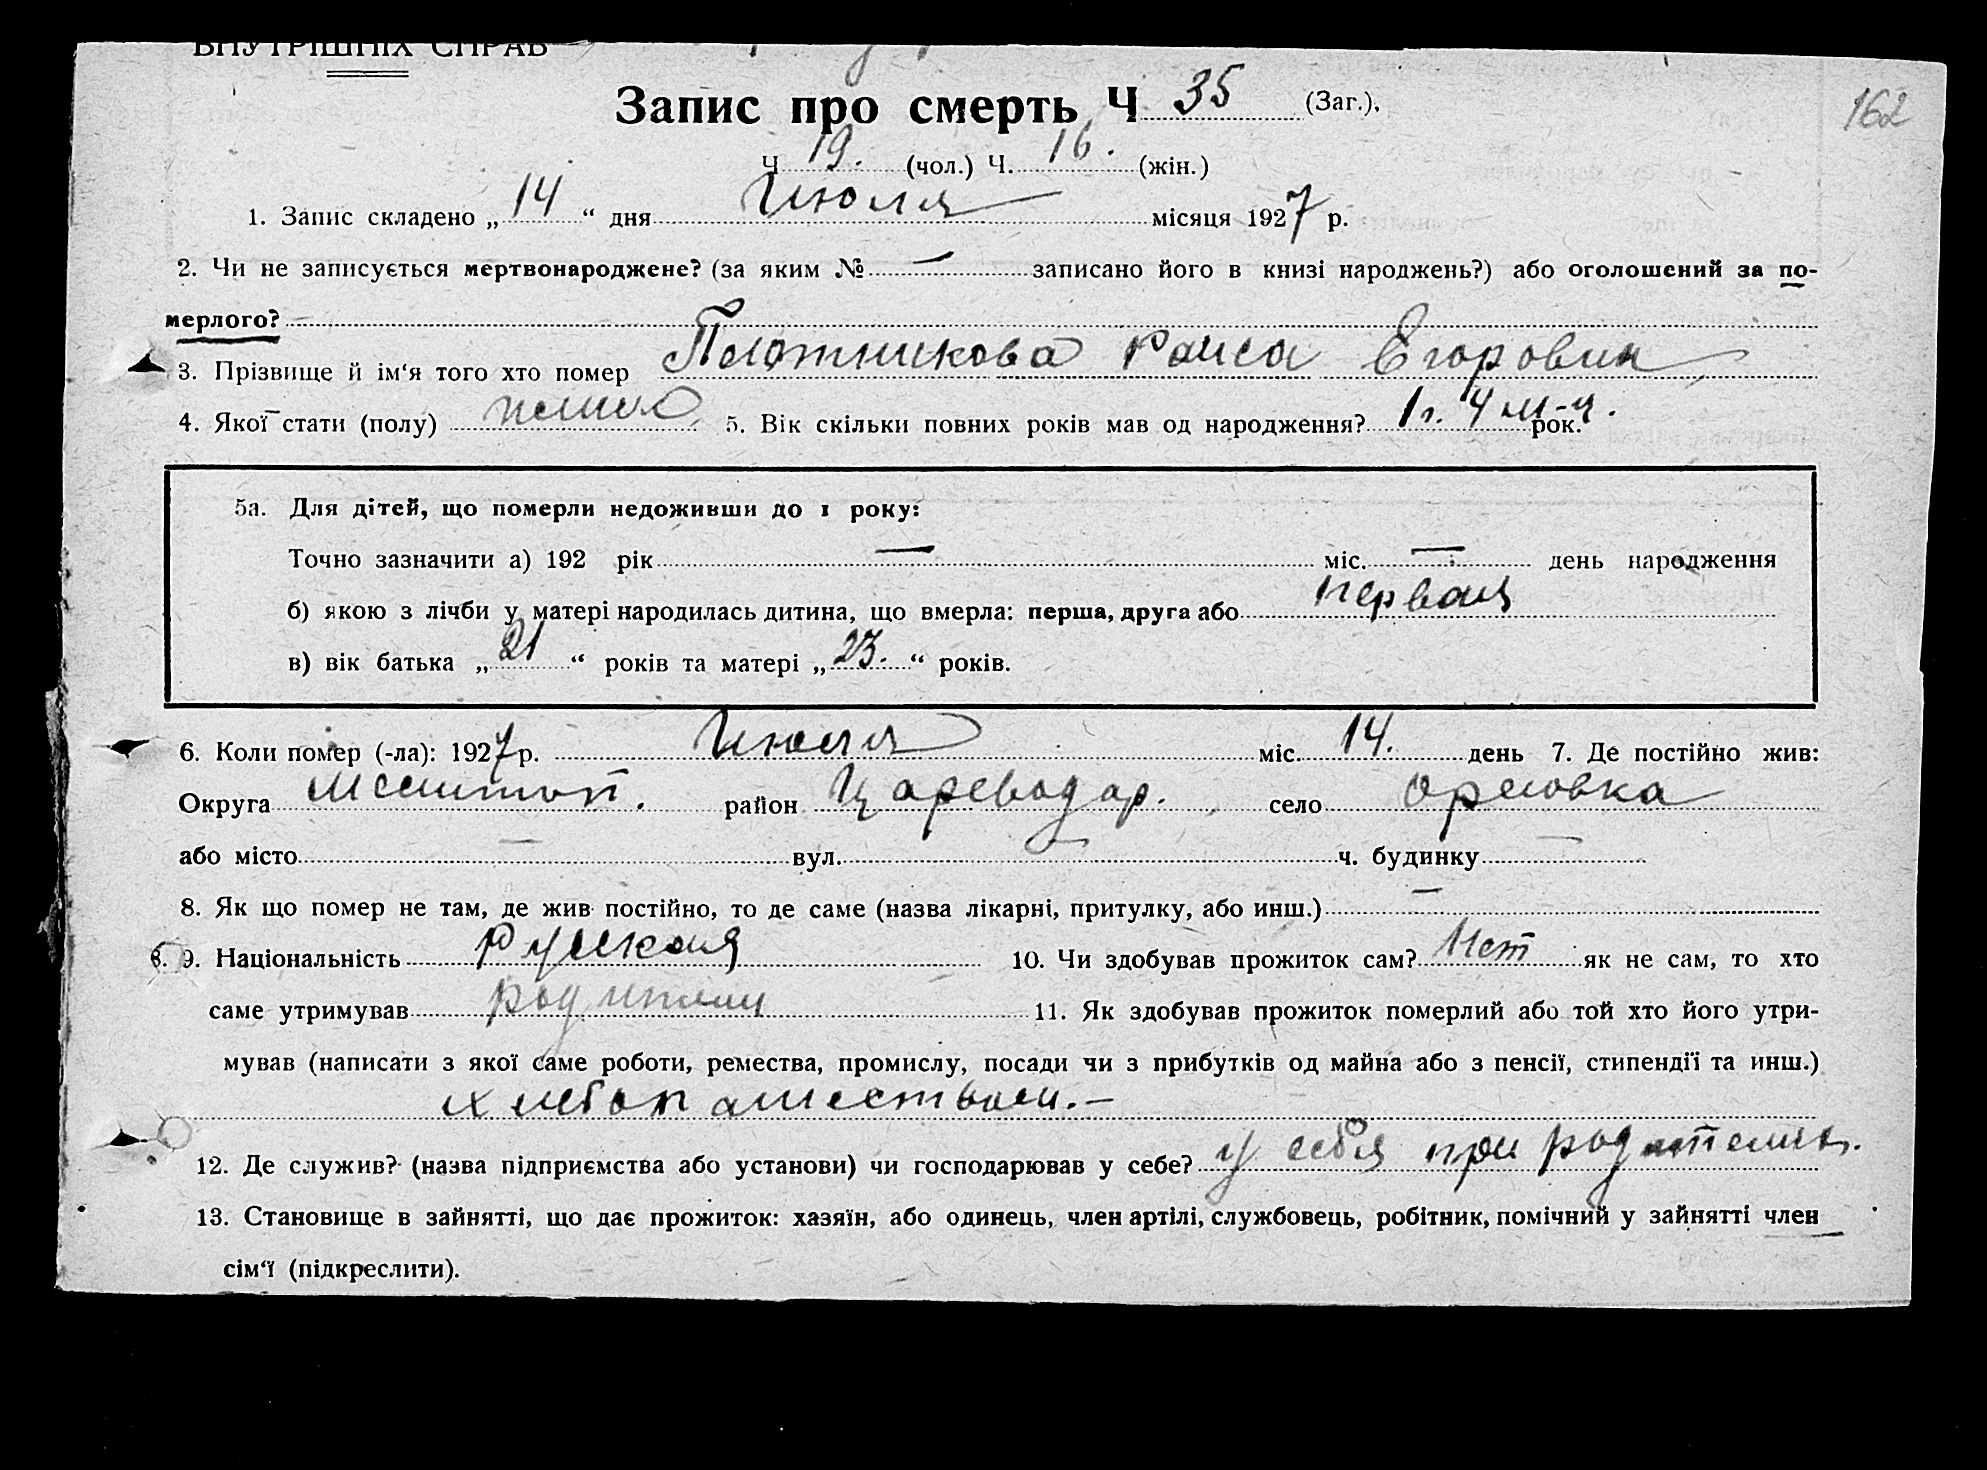 ВНУТРІШНІХ СПРАВ
Запис про смерть Ч 35 (Заг.),
162
Ч 19. (чол.) Ч. 16. (жін.)
1. Запис складено „ 14 “ дня Июля місяця 1927 р.
2. Чи не записується мертвонароджене? (за яким № — записано його в книзі народжень?) або оголошений за по-
мерлого?
3. Прізвище й ім‘я того хто помер Плотникова Раиса Егоровна
4. Якої стати (полу) 5. Вік скільки повних років мав од народження? 1 г. 4 м-ч. рок.
5а. Для дітей, що померли недоживши до 1 року:
Точно зазначити а) 192 рік — міс. — день народження
б) якою з лічби у матері народилась дитина, що вмерла: перша, друга або первая
в) вік батька „ 21 “ років та матері „ 23. “ років.
6. Коли помер (-ла): 1927 р. Июля міс. 14. день 7. Де постійно жив:
Округа Мелитоп. район Цареводар. село Орловка
або місто — вул. — ч. будинку —
8. Як що помер не там, де жив постійно, то де саме (назва лікарні, притулку, або инш.) —
9. Національність Русская 10. Чи здобував прожиток сам? Нет як не сам, то хто
саме утримував родители 11. Як здобував прожиток померлий або той хто його утри-
мував (написати з якої саме роботи, ремества, промислу, посади чи з прибутків од майна або з пенсії, стипендії та инш.)
хлебопашеством. —
12. Де служив? (назва підприємства або установи) чи господарював у себе? у себя при родителях.
13. Становище в зайнятті, що дає прожиток: хазяїн, або одинець, член артілі, службовець, робітник, помічний у зайнятті член
сім‘ї (підкреслити).